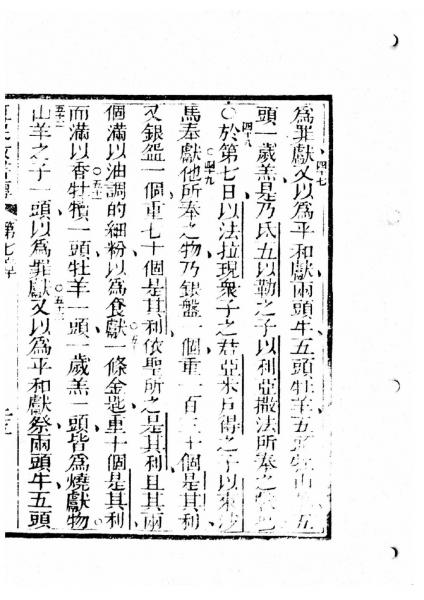 爲罪獻又以爲平和獻兩頭牛五頭牡羊五頭山五
四十七
頭一歲羔是乃氏五以勒之子以利亞撒法所奉之
四十八
○於第七日以法拉現衆子之君亞米戶得之子以東沙
四十九
馬奉獻他所奉之物乃銀盤一個重一百三十個是其利
又銀盌一個重七十個是其利依聖所之是其利且其兩
個滿以油調的細粉以爲食獻一條金匙重十個是其利
五十
而滿以香牡犢一頭牡羊一頭一歲羔一頭皆爲燒獻物
五十一
山羊之子一頭以爲罪獻又以爲平和獻祭兩頭牛五頭
五十二
第七章